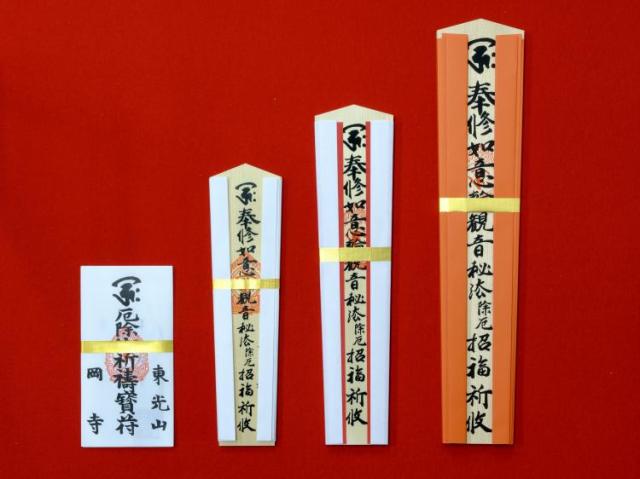 東光山
厄除祈禱寶符
岡寺
奉修如意觀音秘法除厄招福祈攸
奉修如意輪觀音秘法除厄招福祈攸
奉修如意輪觀音秘法除厄招福祈攸